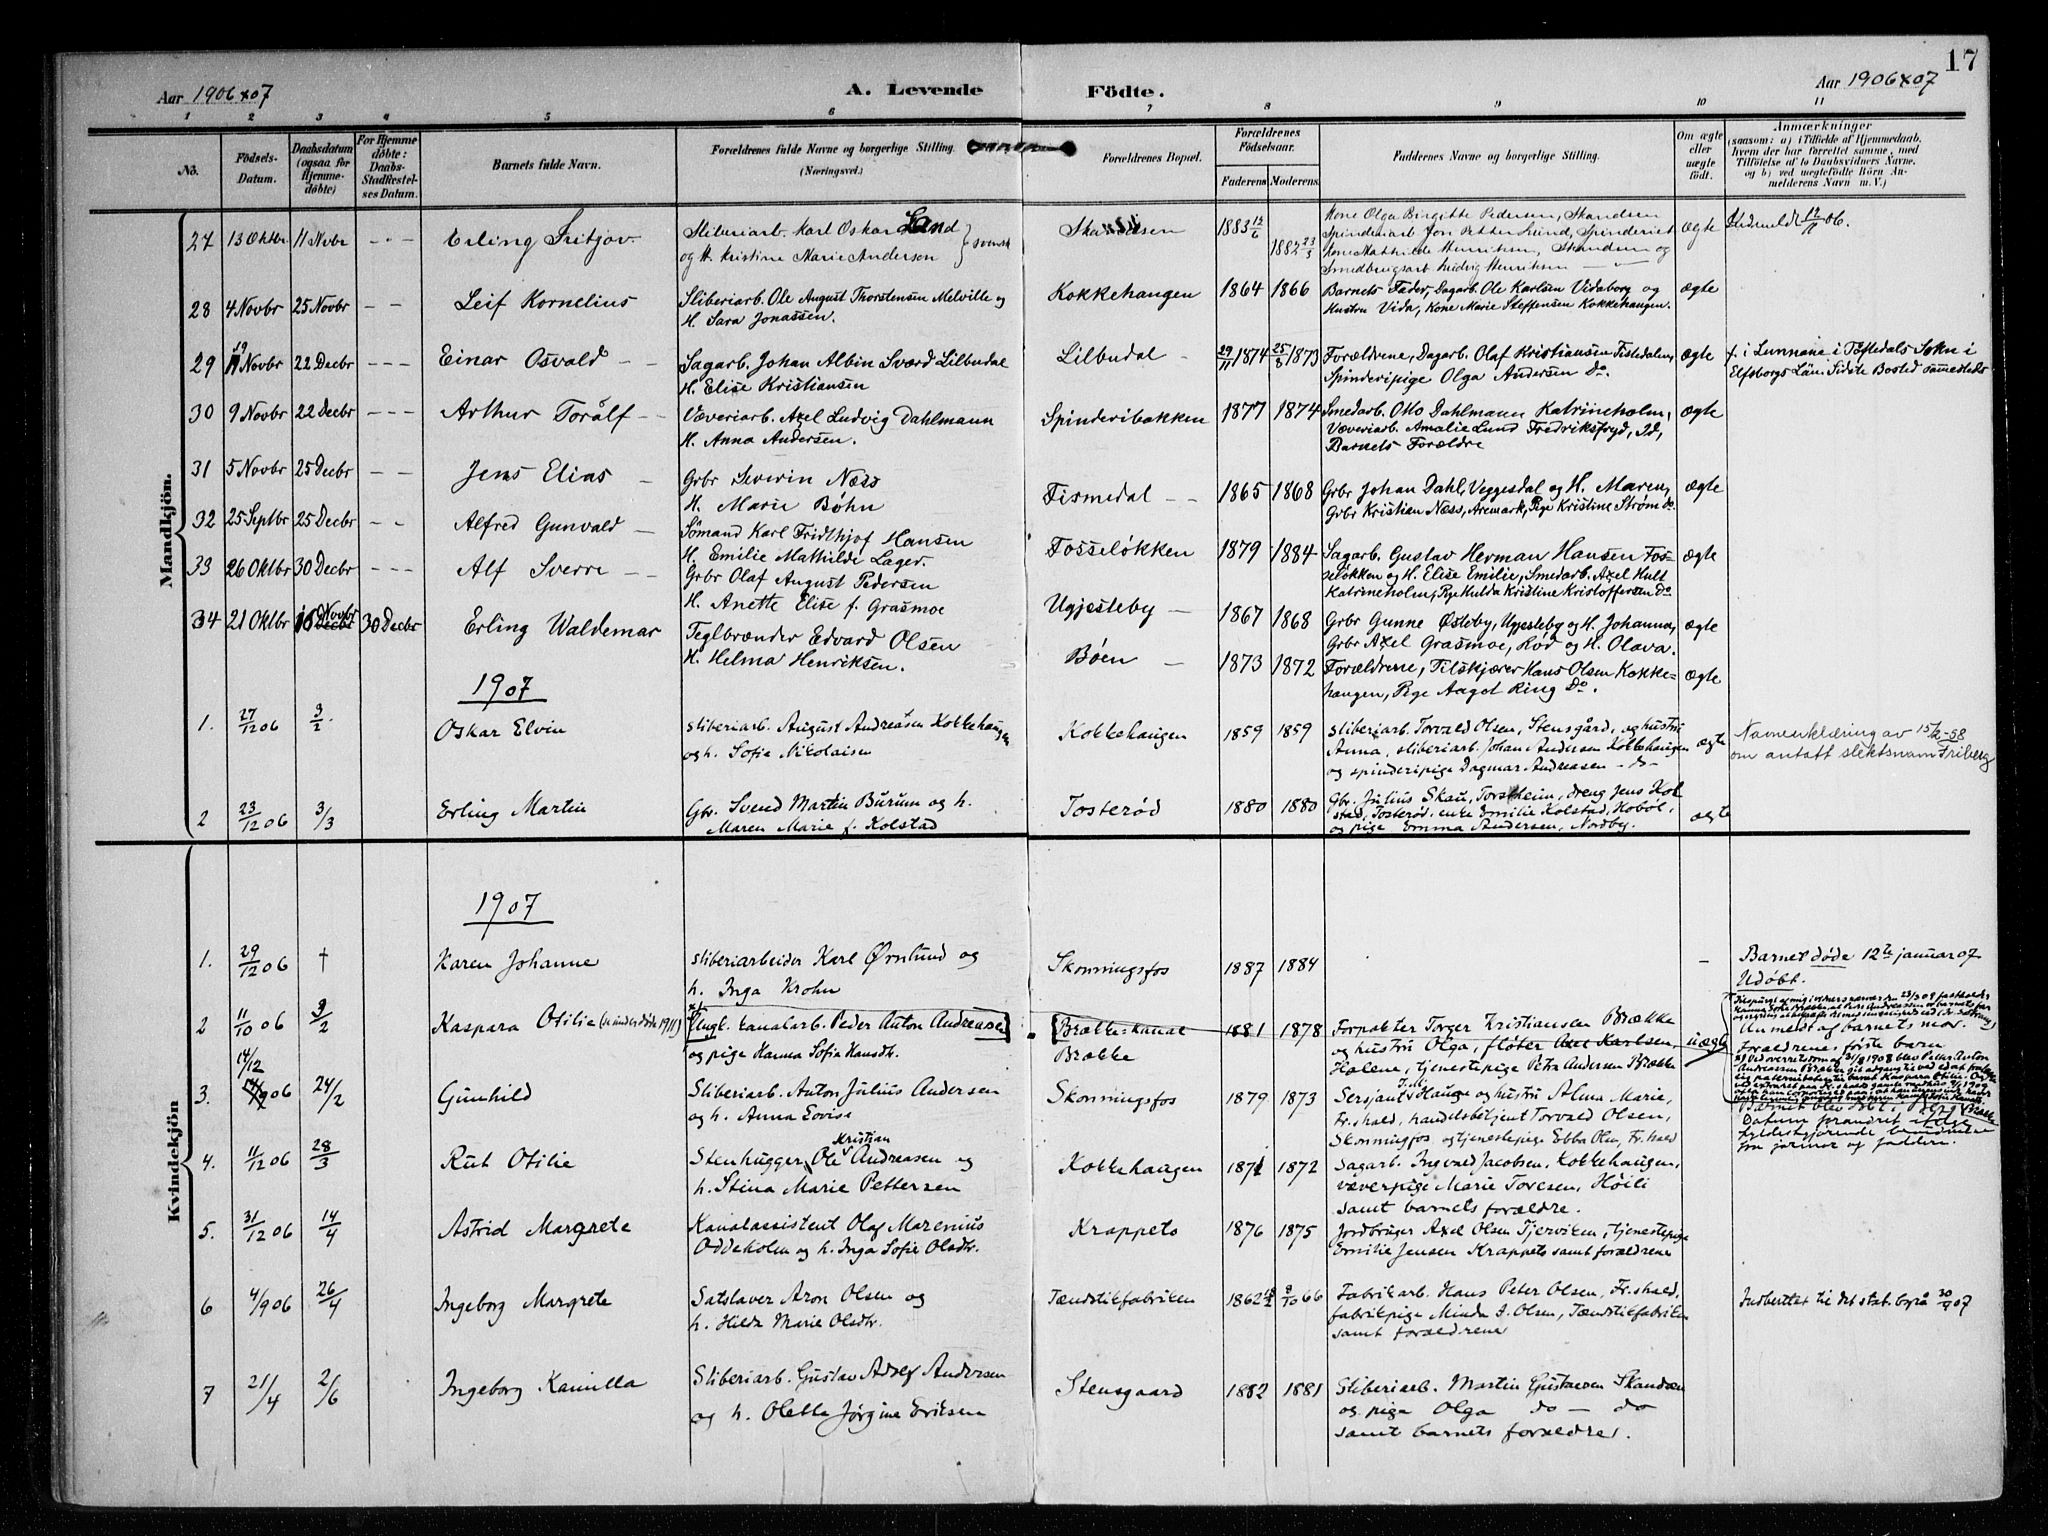 17
Aar 1906 x 07
A. Levende
Födte.
Aar 1906 x 07
1 2 3 4 5 6 7 8 9 10 11
No.
Födsels-Datum.
Daabsdatum (ogsaa for Hjemme-döbte)
For Hjemme döbte: Daabs-Stadfæstel-ses Datum.
Barnets fulde Navn.
Forældrenes fulde Navne og borgerlige Stilling
(Næringsvei.)
Forældrenes Bopæl.
Forældrenes Födselsaar.
Faderens Moderens
Faddernes Navne og borgerlige Stilling.
Om ægte eller uægte födt.
Anmærkninger
(saasom: a) i Tilfælde af Hjemmedaab, hvem der har forrettet samme, med Tilföielse af to Daabsvidners Navne. og b) ved uægtefödte Börn An-melderens Navn m. V.)
Mandkjön.
27 13 Oktbr 11 Novbr - - - Erling Fritjov. Sliberiarb. Karl Oskar Lund og H. Kristine Marie Anderson } svensk Skandsen 1883 1882 23/3
Kone Olga Birgitte Pedersen, Skandsen
Spinderiarb Jon Petter Lund, Spinderiet
Kone Mathilde Henriksen, Skandsen og
Smedbrugsarb Ludvig Henriksen
ægte
28 4 Novbr 25 Novbr - - Leif Kornelius Sliberiarb. Ole August Thorstensen Melville og
H. Sara Jonassen.
Kokkehaugen 1864 1866 Barnets Fader, Dagarb. Ole Karlsen Vidaborg og
Hustru Vida, Kone Marie Steffensen Kokkehaugen.
ægte
29 19 Novbr 22 Decbr - - - Einar Osvald - - Sagarb. Johan Albin Sværd Lilbudal
H. Elise Kristiansen
Lilbudal - 29/11 1874 25/5 1873 Forældrene, Dagarb. Olaf Kristiansen Tistedalen,
Spinderipige Olga Andersen Do.
ægte f. i Lunnane i Töftedals Sokn i
Elfsborgs Län. Sidste Bosted sammesteds
30 9 Novbr 22 Decbr - - - Arthur Toralf - - Væveriarb. Axel Ludvig Dahlmann
H. Anna Andersen.
Spinderibakken 1877 1874 Smedarb. Otto Dahlmann Katrineholm,
Væveriarb Amalie Lund Fredriksfryd, Id,
Barnets Forældre
ægte
31 5 Novbr 25 Decbr - - - Jens Elias - Grbr Severin Næss
H. Marie Bøhn
Tismedal - - 1865 1868 Grbr Johan Dahl, Veggesdal og H. Maren,
Grbr Kristian Næss, Aremark, Pige Kristine Strøm do.
ægte
32 25 Septbr 25 Decbr - - Alfred Gunvald - Sømand Karl Fridthjof Hansen
H. Emilie Mathilde Lager.
Fosseløkken 1879 1884 Sagarb. Gustav Herman Hansen Fos-
seløkken og H. Elise Emilie, Smedarb. Axel Hult
Katrineholm, Pige Hulda Kristine Kristoffersen Do
ægte
33 26 Oktbr 30 Decbr - - - Alf Sverre - - Grbr Olaf August Pedersen
H. Anette Elise f. Grasmoe
Ugjesteby - 1867 1868 Grbr Gunne Østeby, Ugjesteby og H. Johanna,
Grbr Axel Grasmoe, Rød og H. Olava.
ægte
34 21 Oktbr Novbr 30 Decbr Erling Waldemar Teglbrænder Edvard Olsen
H. Helma Henriksen.
Bøen - 1873 1872 Forældrene, Tilskjærer Hans Olsen Kokke-
haugen, Pige Aagot Ring Do.
ægte
1907
1. 27/12 06 3/2. Oskar Elvin sliberiarb. August Andreasen Kokkehaugen
og h. Sofie Nikolaisen
Kokkehaugen 1859 1859 sliberiarb. Torvald Olsen, Stensgård, og hustru
Anna, sliberiarb. Johan Andersen Kokkehaugen
og spinderipige Dagmar Andreasen - do -
ægte Navneerklæring av 15/2-58
om antatt slektsnavn Friberg
2 23/12 06 3/3 Erling Martin Gbr. Svend Martin Burum og h.
Maren Marie f. Kolstad
Tosterød 1880 1880 Gbr. Julius Skau, Torstheim, dreng Jens Kol
stad, Tosterød, enke Emilie Kolstad, Hobøl,
og pige Emma Andersen, Nordby.
ægte
Kvindekjön
1907
1. 29/12 06 † Karen Johanne sliberiarbeider Karl Ørnlund og
h. Inga Krohn
Skonningsfos 1887 1884 -
Barnet døde 12te januar 07
Udøbt.
2 11/10 06 3/2 Kaspara Otilie Ungk. kanalarb. Peder Anton Andreasen
og pige Hanna Sofie Hansdtr.
Brække-kanal
Brække
1881 1878 Forpakter Torger Kristiansen Brække
og hustru Olga, fløter Axel Karlsen,
Halene, tjenestepige Petra Andersen Brække
uægte
Anmeldt af barnets mor.
Forældrenes første barn
3. 14/12 06 24/2 Gunhild Sliberiarb. Anton Julius Andersen
og h. Anna Lovise
Skonningsfos 1879 1873 Sersjant Hauge og hustru Alma Marie,
Fr.hald, handelsbetjent Torvald Olsen,
Skonningfos og tjenestepige Ebba Olsen, Fr.hald
Datum forandret ifølge
fyldestgjørende bevidnelse
fra jormor og faddere.
4. 11/12 06 28/3 Rut Otilie Stenhugger Ole Kristian Andreasen og
h. Stina Marie Pettersen
Kokkehaugen 1871 1872 Sagarb. Ingvald Jacobsen, Kokkehaugen,
væverpige Marie Toresen, Høili
samt barnets forældre.
5. 31/12 06 14/4 Astrid Margrete Kanalassistent Olaf Marenius
Oddeholm og h. Inga Sofie Olsdtr.
Krappeto 1876 1875 Jordbruger Axel Olsen Tjerviken, tjenestepige
Emilie Jensen Krappeto samt forældrene
6 4/9 06 26/4 Ingeborg Margrete Satslaver Aron Olsen og
h. Hilda Marie Olsdtr.
Tændstikfabriken 1862 9/10 66 Fabrikarb. Hans Peter Olsen, Fr.shald,
fabrikpige Minda J. Olsen, Tændstikfabriken
samt forældrene
Indberettet til det stat. byrå 30/4 07
7 21/4 2/6 Ingeborg Kamilla Sliberiarb. Gustav Adolf Andersen
og h. Olette Jørgine Eriksen
Stensgaard 1882 1881 Sliberiarb. Martin Gustavsen Skandsen
og pige Olga do - do
samt barnets forældre.